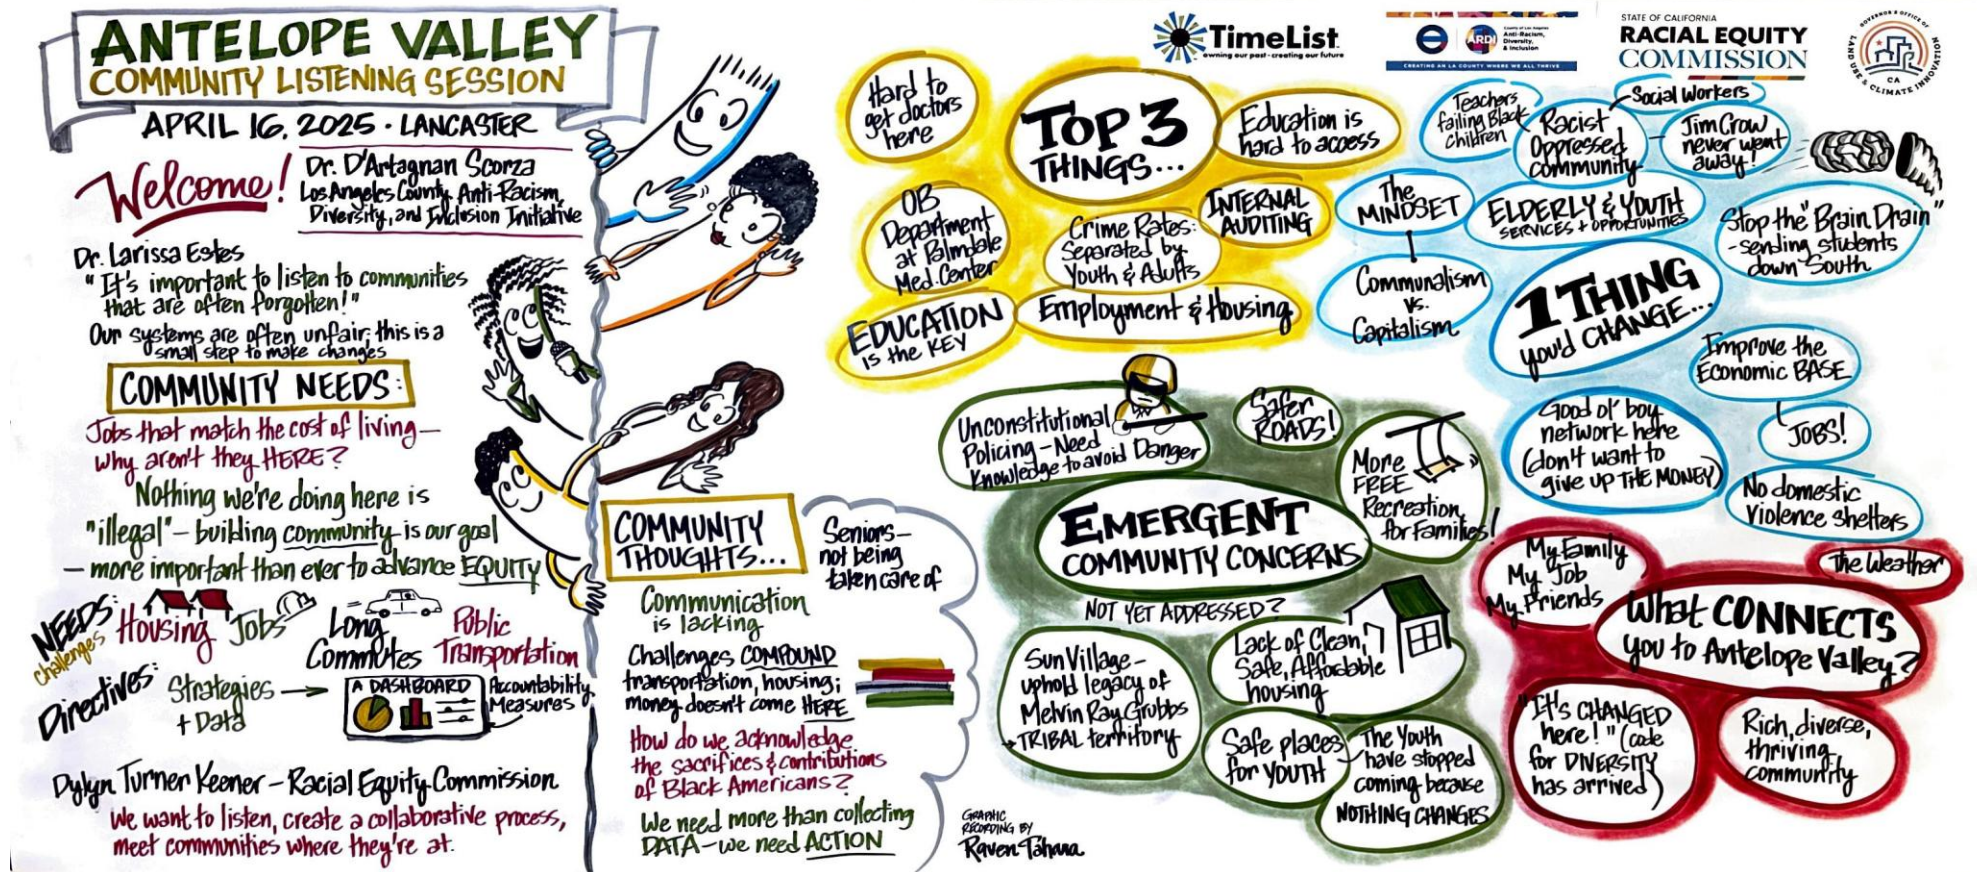 ANTELOPE VALLEY
COMMUNITY LISTENING SESSION
APRIL 16, 2025 · LANCASTER
Welcome!
Dr. D'Artagnan Scorza
Los Angeles County, Anti-Racism,
Diversity, and Inclusion Initiative
Dr. Larissa Estes
"It's important to listen to communities
that are often forgotten!"
Our systems are often unfair; this is a
small step to make changes
COMMUNITY NEEDS:
Jobs that match the cost of living—
why aren't they HERE?
Nothing we're doing here is
"illegal"—building community is our goal
— more important than ever to advance EQUITY
NEEDS:
Challenges
Housing
Jobs
Long
Commutes
Public
Transportation
Directives:
Strategies
+ Data
A DASHBOARD
Accountability
Measures
Dylyn Turner Keener – Racial Equity Commission
We want to listen, create a collaborative process,
meet communities where they're at.
COMMUNITY
THOUGHTS...
Seniors—
not being
taken care of
Communication
is lacking
Challenges COMPOUND
transportation, housing;
money doesn't come HERE
How do we acknowledge
the sacrifices & contributions
of Black Americans?
We need more than collecting
DATA—we need ACTION
GRAPHIC
RECORDING BY
Raven Tahara
TimeList
owning our past - creating our future
County of Los Angeles
ARDI
Anti-Racism,
Diversity,
& Inclusion
CREATING AN LA COUNTY WHERE WE ALL THRIVE
STATE OF CALIFORNIA
RACIAL EQUITY
COMMISSION
GOVERNOR'S OFFICE OF
LAND USE & CLIMATE INNOVATION
CA
TOP 3
THINGS...
Hard to
get doctors
here
Education is
hard to access
OB
Department
at Palmdale
Med. Center
Crime Rates:
Separated by
Youth & Adults
INTERNAL
AUDITING
EDUCATION
IS the KEY
Employment & Housing
1 THING
you'd CHANGE...
Teachers
failing Black
children
Racist
Oppressed
community
Social Workers
Jim Crow
never went
away!
The
MINDSET
Communalism
vs.
Capitalism
ELDERLY & YOUTH
SERVICES + OPPORTUNITIES
Stop the "Brain Drain"
-sending students
down South
Improve the
Economic BASE
JOBS!
Good ol' boy
network here
(don't want to
give up THE MONEY)
No domestic
Violence shelters
EMERGENT
COMMUNITY CONCERNS
NOT YET ADDRESSED?
Unconstitutional
Policing – Need
Knowledge to avoid Danger
Safer
ROADS!
More
FREE
Recreation
for Families!
Sun Village –
uphold legacy of
Melvin Ray Grubbs
→ TRIBAL territory
Lack of Clean,
Safe, Affordable
housing
Safe places
for YOUTH
The Youth
have stopped
coming because
NOTHING CHANGES
What CONNECTS
you to Antelope Valley?
My Family
My Job
My Friends
The Weather
"It's CHANGED
here!" (code
for DIVERSITY
has arrived)
Rich, diverse,
thriving
community